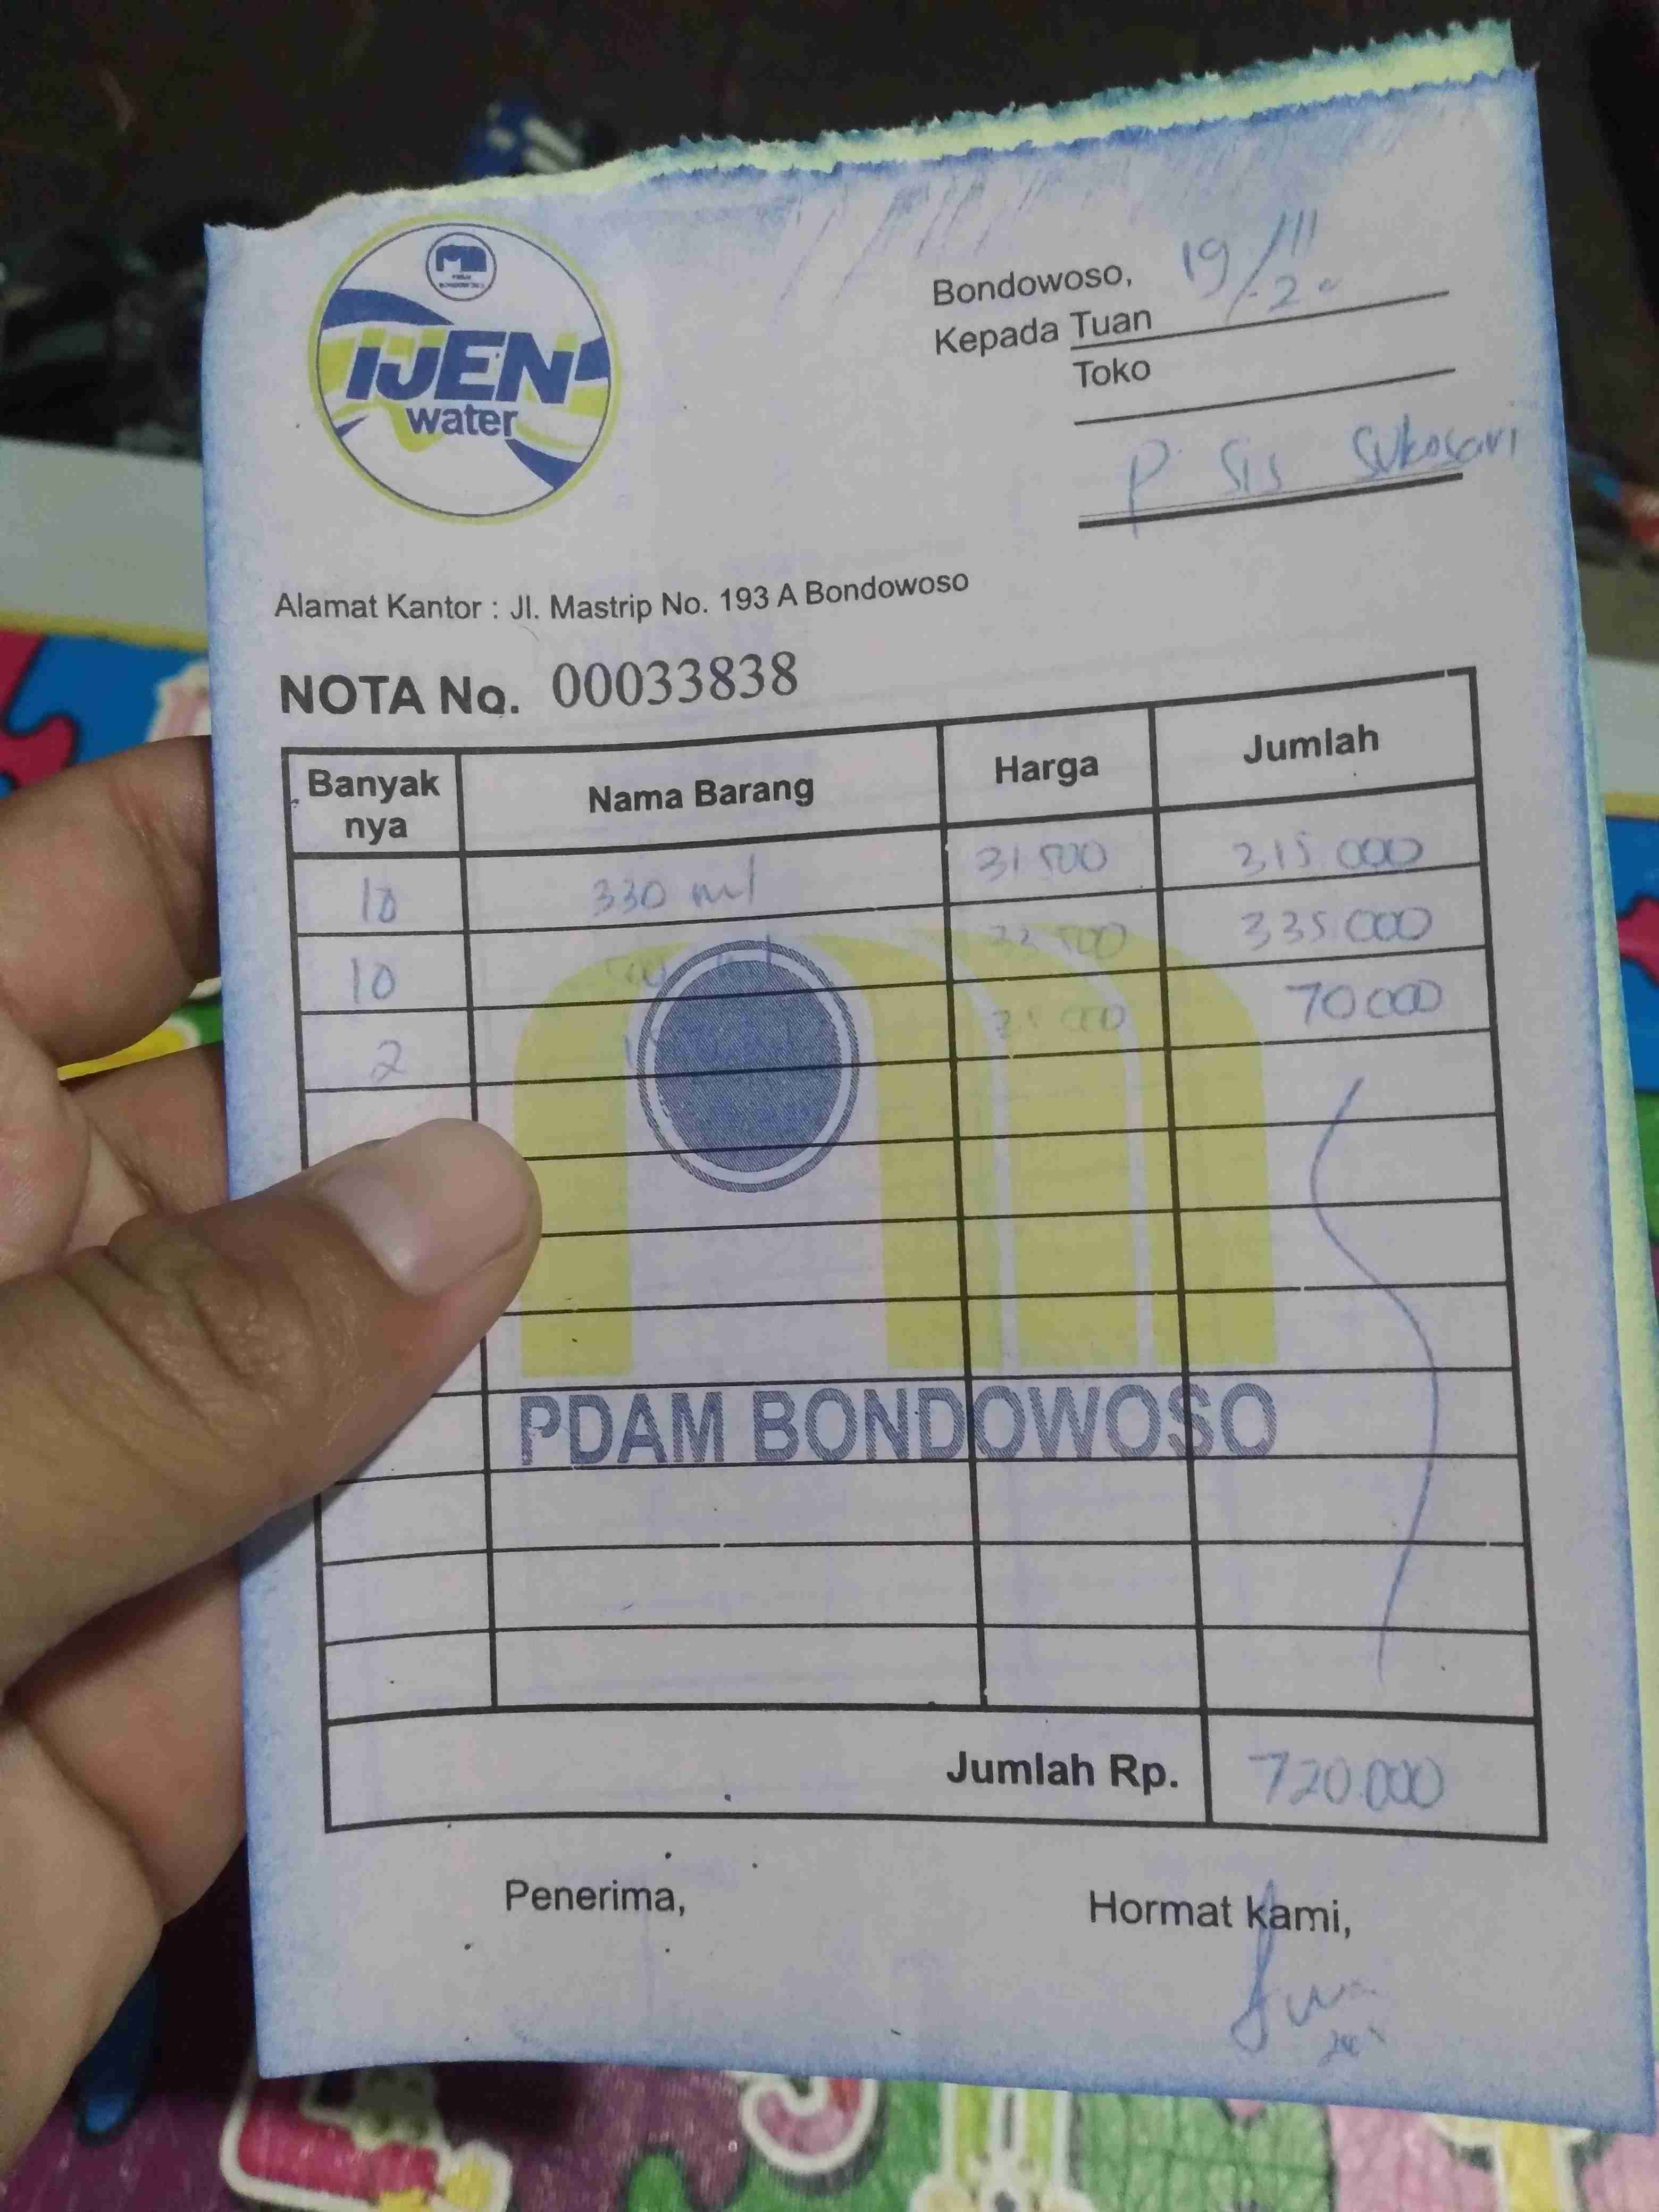 IJEN
water
Bondowoso, 19/11
Kepada Tuan
Toko
P Sis Sukosari
Alamat Kantor : Jl. Mastrip No. 193 A Bondowoso
NOTA No. 00033838
Banyak nya Nama Barang Harga Jumlah
10 330 ml 31 500 315.000
10 33 500 335.000
2 35 000 70 000
PDAM BONDOWOSO
Jumlah Rp. 720.000
Penerima, Hormat kami,